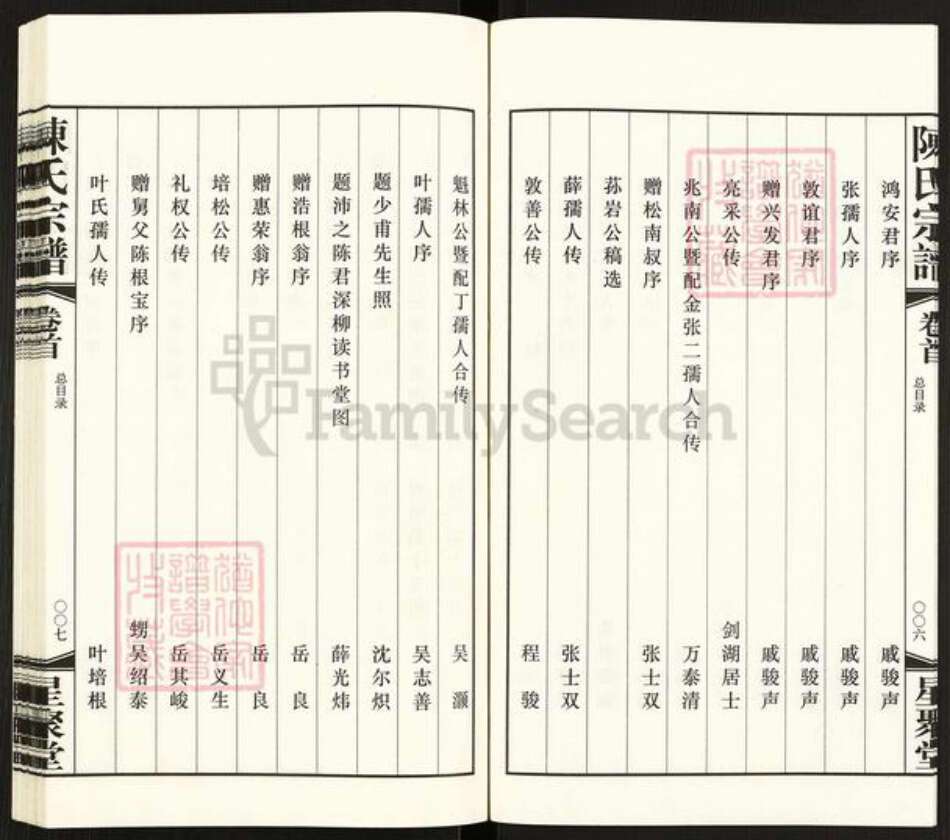 陳氏宗譜
卷首
总目录
〇〇六
星聚堂
鸿安君序 戚骏声
张孺人序 戚骏声
敦谊君序 戚骏声
赠兴发君序 戚骏声
亮采公传 剑湖居士
兆南公暨配金张二孺人合传 万泰清
赠松南叔序 张士双
荪岩公稿选
薛孺人传 张士双
敦善公传 程骏
魁林公暨配丁孺人合传 吴灏
叶孺人序 吴志善
题少甫先生照 沈尔炽
题沛之陈君深柳读书堂图 薛光炜
赠浩根翁序 岳良
赠惠荣翁序 岳良
培松公传 岳义生
礼权公传 岳其峻
赠舅父陈根宝序 甥吴绍泰
叶氏孺人传 叶培根
陳氏宗譜
卷首
总目录
〇〇七
星聚堂
FamilySearch